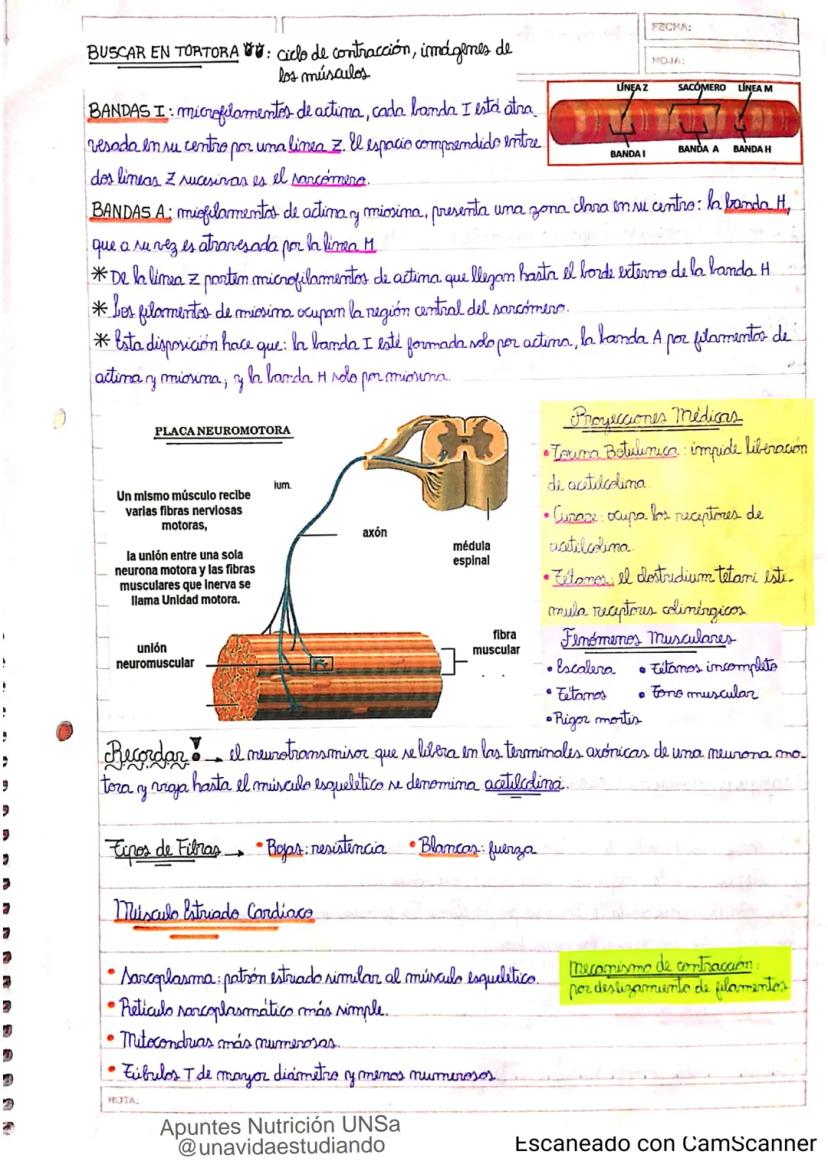 FECHA:
HOJA:
BUSCAR EN TORTORA: ciclo de contracción, imágenes de
los músculos
LÍNEA Z SACÓMERO LÍNEA M
BANDA I BANDA A BANDA H
BANDAS I: microfilamentos de actina, cada banda I está atra
vesada en su centro por una línea Z. El espacio comprendido entre
dos líneas Z sucesivas es el sarcómero.
BANDAS A: miofilamentos de actina y miosina, presenta una zona clara en su centro: la banda H,
que a su vez es atravesada por la línea M
* De la línea Z parten microfilamentos de actina que llegan hasta el borde externo de la banda H
* Los filamentos de miosina ocupan la región central del sarcómero.
* Esta disposición hace que: la banda I esté formada solo por actina, la banda A por filamentos de
actina y miosina, y la banda H solo por miosina.
PLACA NEUROMOTORA
ium.
Un mismo músculo recibe
varias fibras nerviosas
motoras,
la unión entre una sola
neurona motora y las fibras
musculares que inerva se
llama Unidad motora.
axón
médula
espinal
unión
neuromuscular
fibra
muscular
Proyecciones Médicas
• Toxina Botulínica: impide liberación
de acetilcolina.
• Curare: ocupa los receptores de
acetilcolina.
• Tétanos: el clostridium tetani esti-
mula receptores colinérgicos
Fenómenos Musculares
• Escalera • Tétanos incompleto
• Tétanos • Tono muscular
• Rigor mortis
Recordar! → el neurotransmisor que se libera en las terminales axónicas de una neurona mo-
tora y viaja hasta el músculo esquelético se denomina acetilcolina.
Tipos de Fibras → • Rojas: resistencia • Blancas: fuerza
Músculo Estriado Cardíaco
• Sarcoplasma: patrón estriado similar al músculo esquelético.
• Retículo sarcoplasmático más simple.
• Mitocondrias más numerosas.
• Túbulos T de mayor diámetro y menos numerosos
Mecanismo de contracción:
por deslizamiento de filamentos
NOTA:
Apuntes Nutrición UNSa
@unavidaestudiando
Escaneado con CamScanner